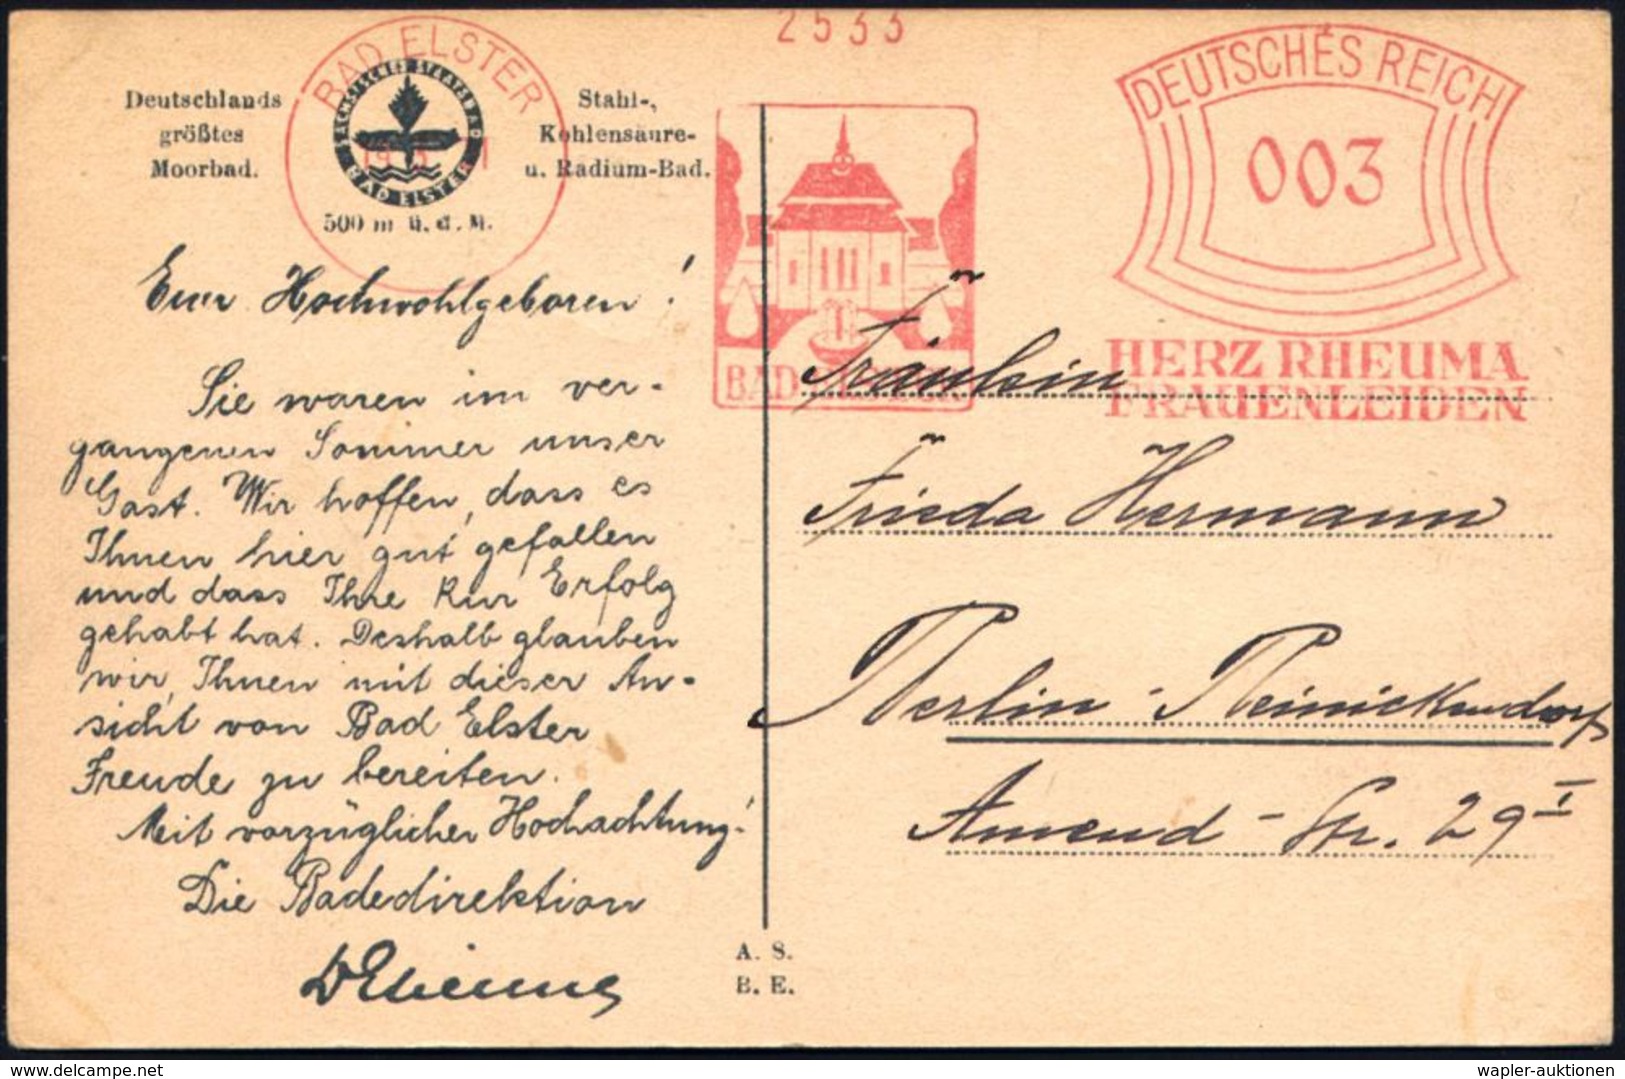 2533
BAD ELSTER
DEUTSCHES REICH
003
Deutschlands
größtes
Moorbad.
SÄCHSISCHES STAATSBAD
BAD ELSTER
500 m ü. d. M.
Stahl-,
Kohlensäure-
u. Radium-Bad.
BAD ELSTER
HERZ RHEUMA
FRAUENLEIDEN
Euer Hochwohlgeboren!
Sie waren im ver-
gangenen Sommer unser
Gast. Wir hoffen, dass es
Ihnen hier gut gefallen
und dass Ihre Kur Erfolg
gehabt hat. Deshalb glauben
wir, Ihnen mit dieser An-
sicht von Bad Elster
Freude zu bereiten.
Mit vorzüglicher Hochachtung!
Die Badedirektion
Fräulein
Frieda Hermann
Berlin-Reinickendorf
Amend-Str. 29 I
A. S.
B. E.
wapler-auktionen